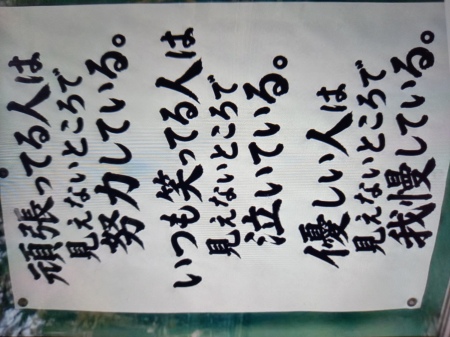 頑張ってる人は
見えないところで
努力している。
いつも笑ってる人は
見えないところで
泣いている。
優しい人は
見えないところで
我慢している。